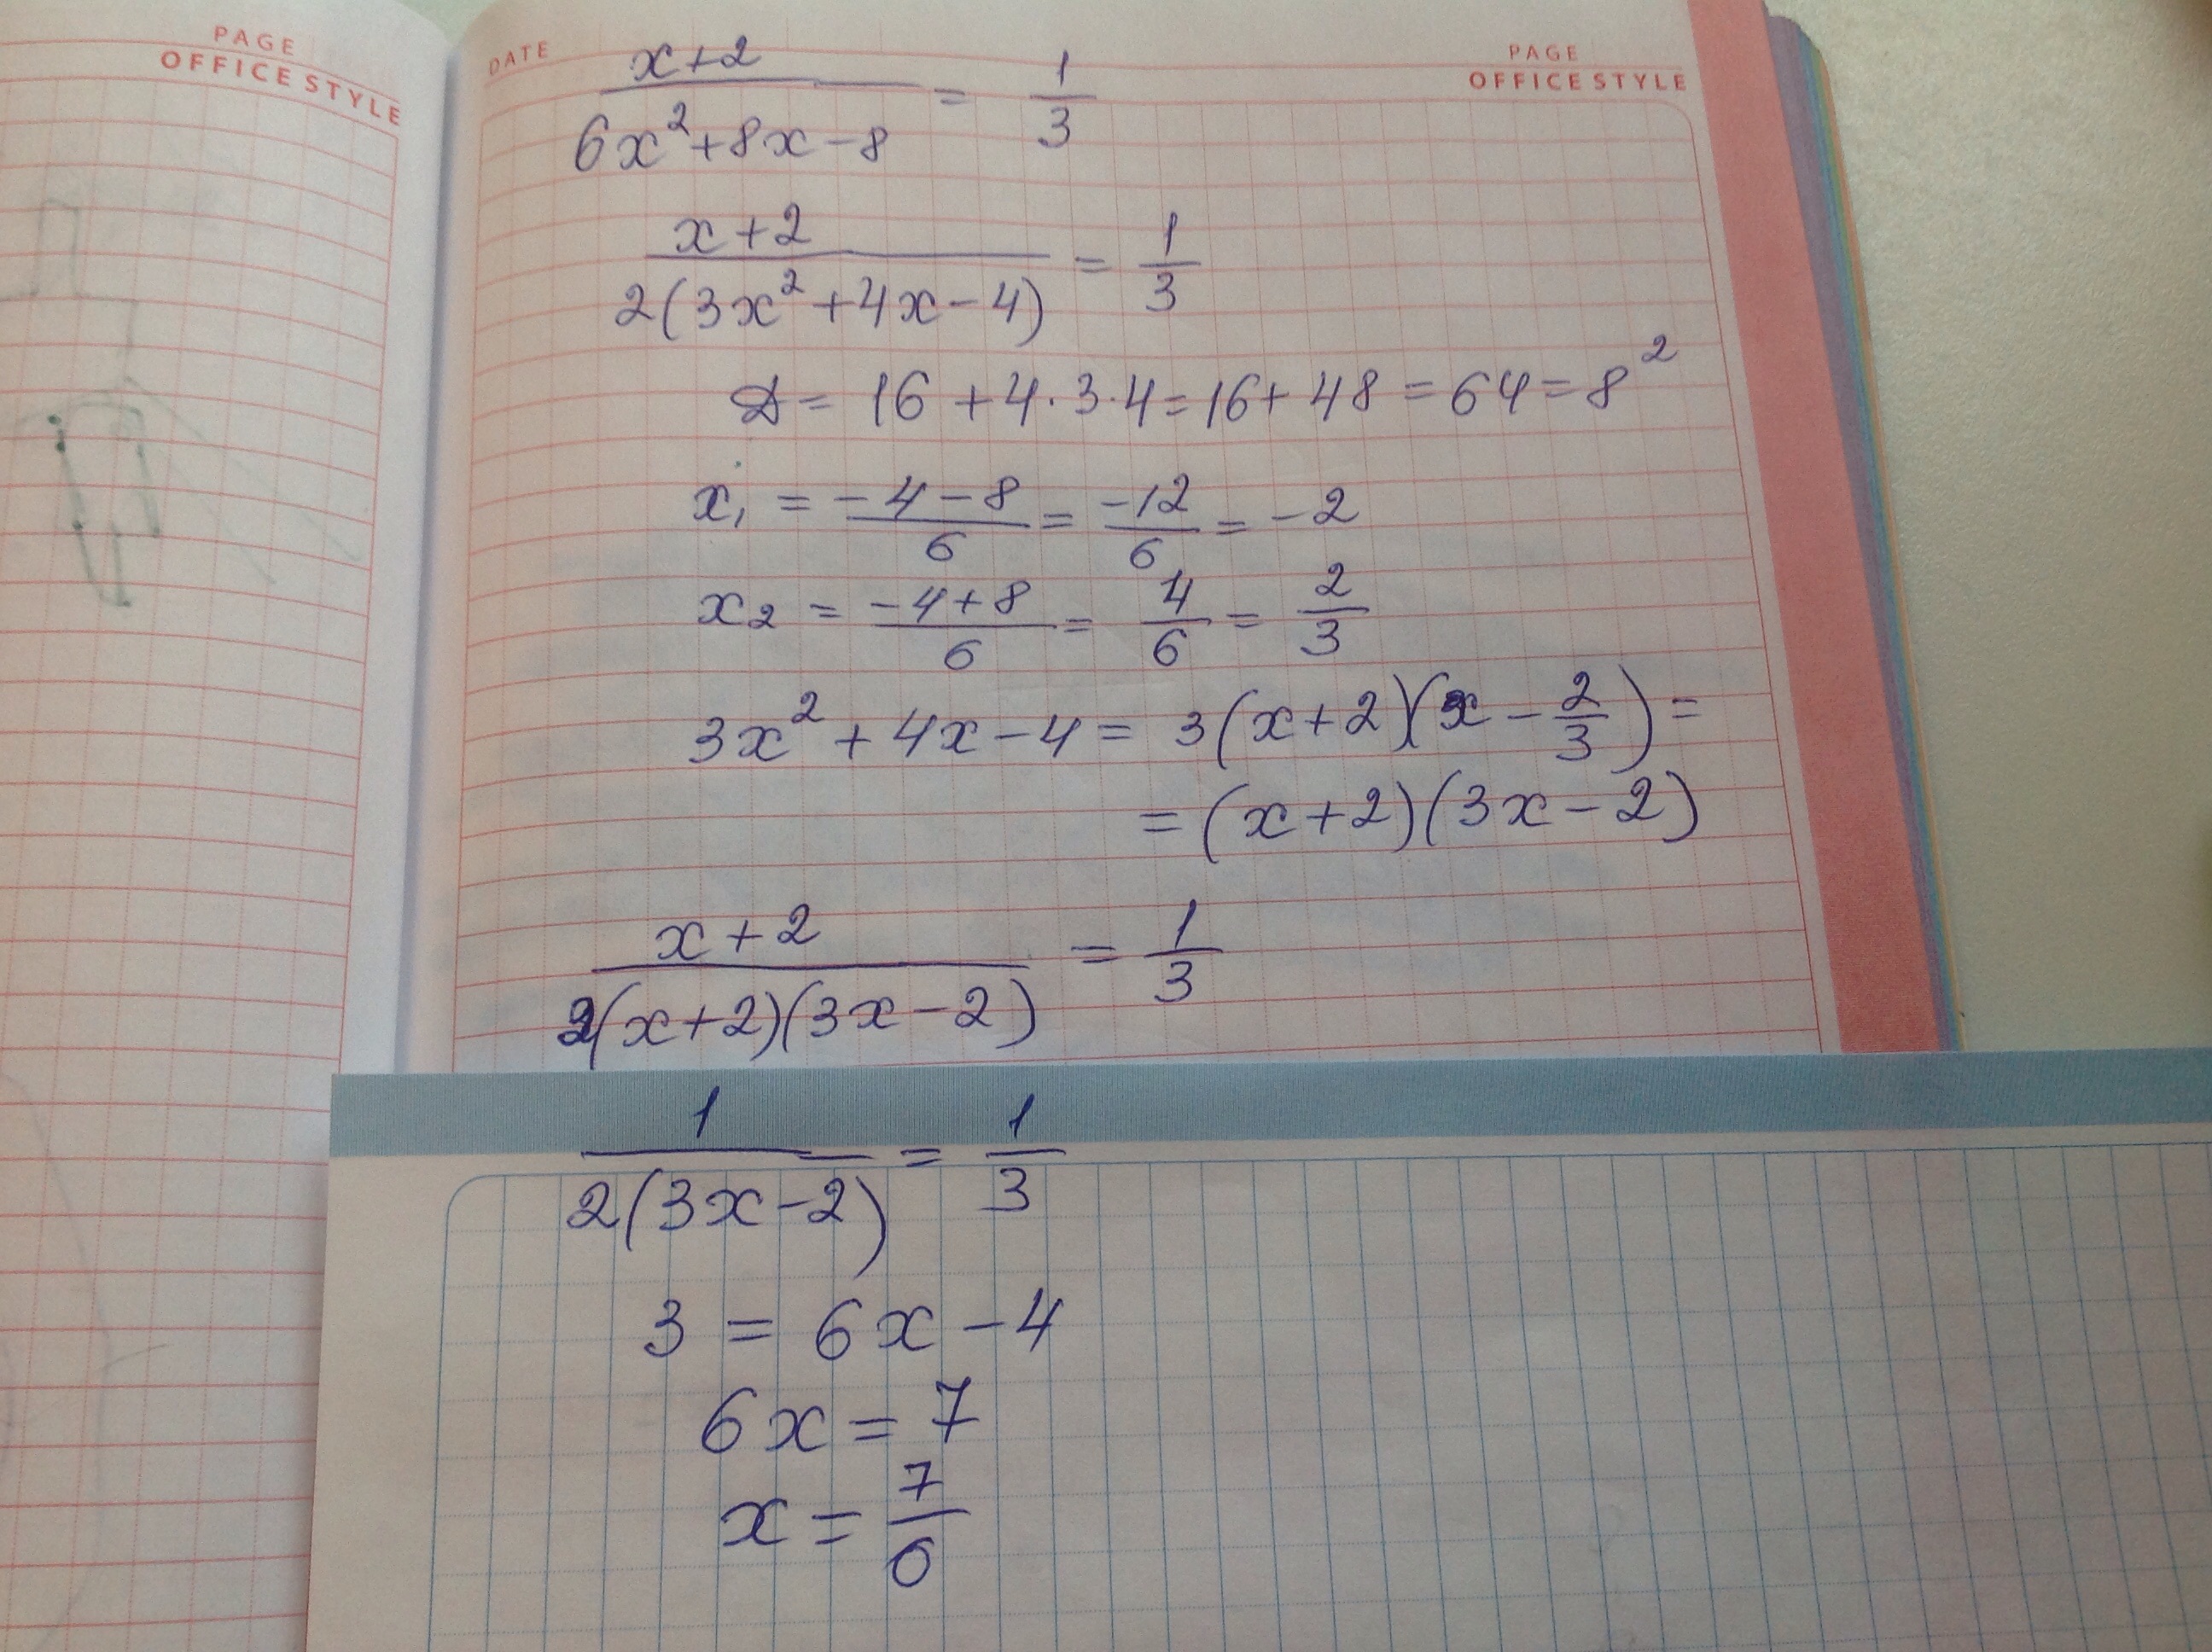 PAGE
OFFICE STYLE
DATE
PAGE
OFFICE STYLE
(x+2)/(6x²+8x-8) = 1/3
(x+2)/(2(3x²+4x-4)) = 1/3
D = 16 + 4·3·4 = 16 + 48 = 64 = 8²
x₁ = (-4-8)/6 = -12/6 = -2
x₂ = (-4+8)/6 = 4/6 = 2/3
3x² + 4x - 4 = 3(x+2)(x - 2/3) =
= (x+2)(3x-2)
(x+2)/(2(x+2)(3x-2)) = 1/3
1/(2(3x-2)) = 1/3
3 = 6x - 4
6x = 7
x = 7/6